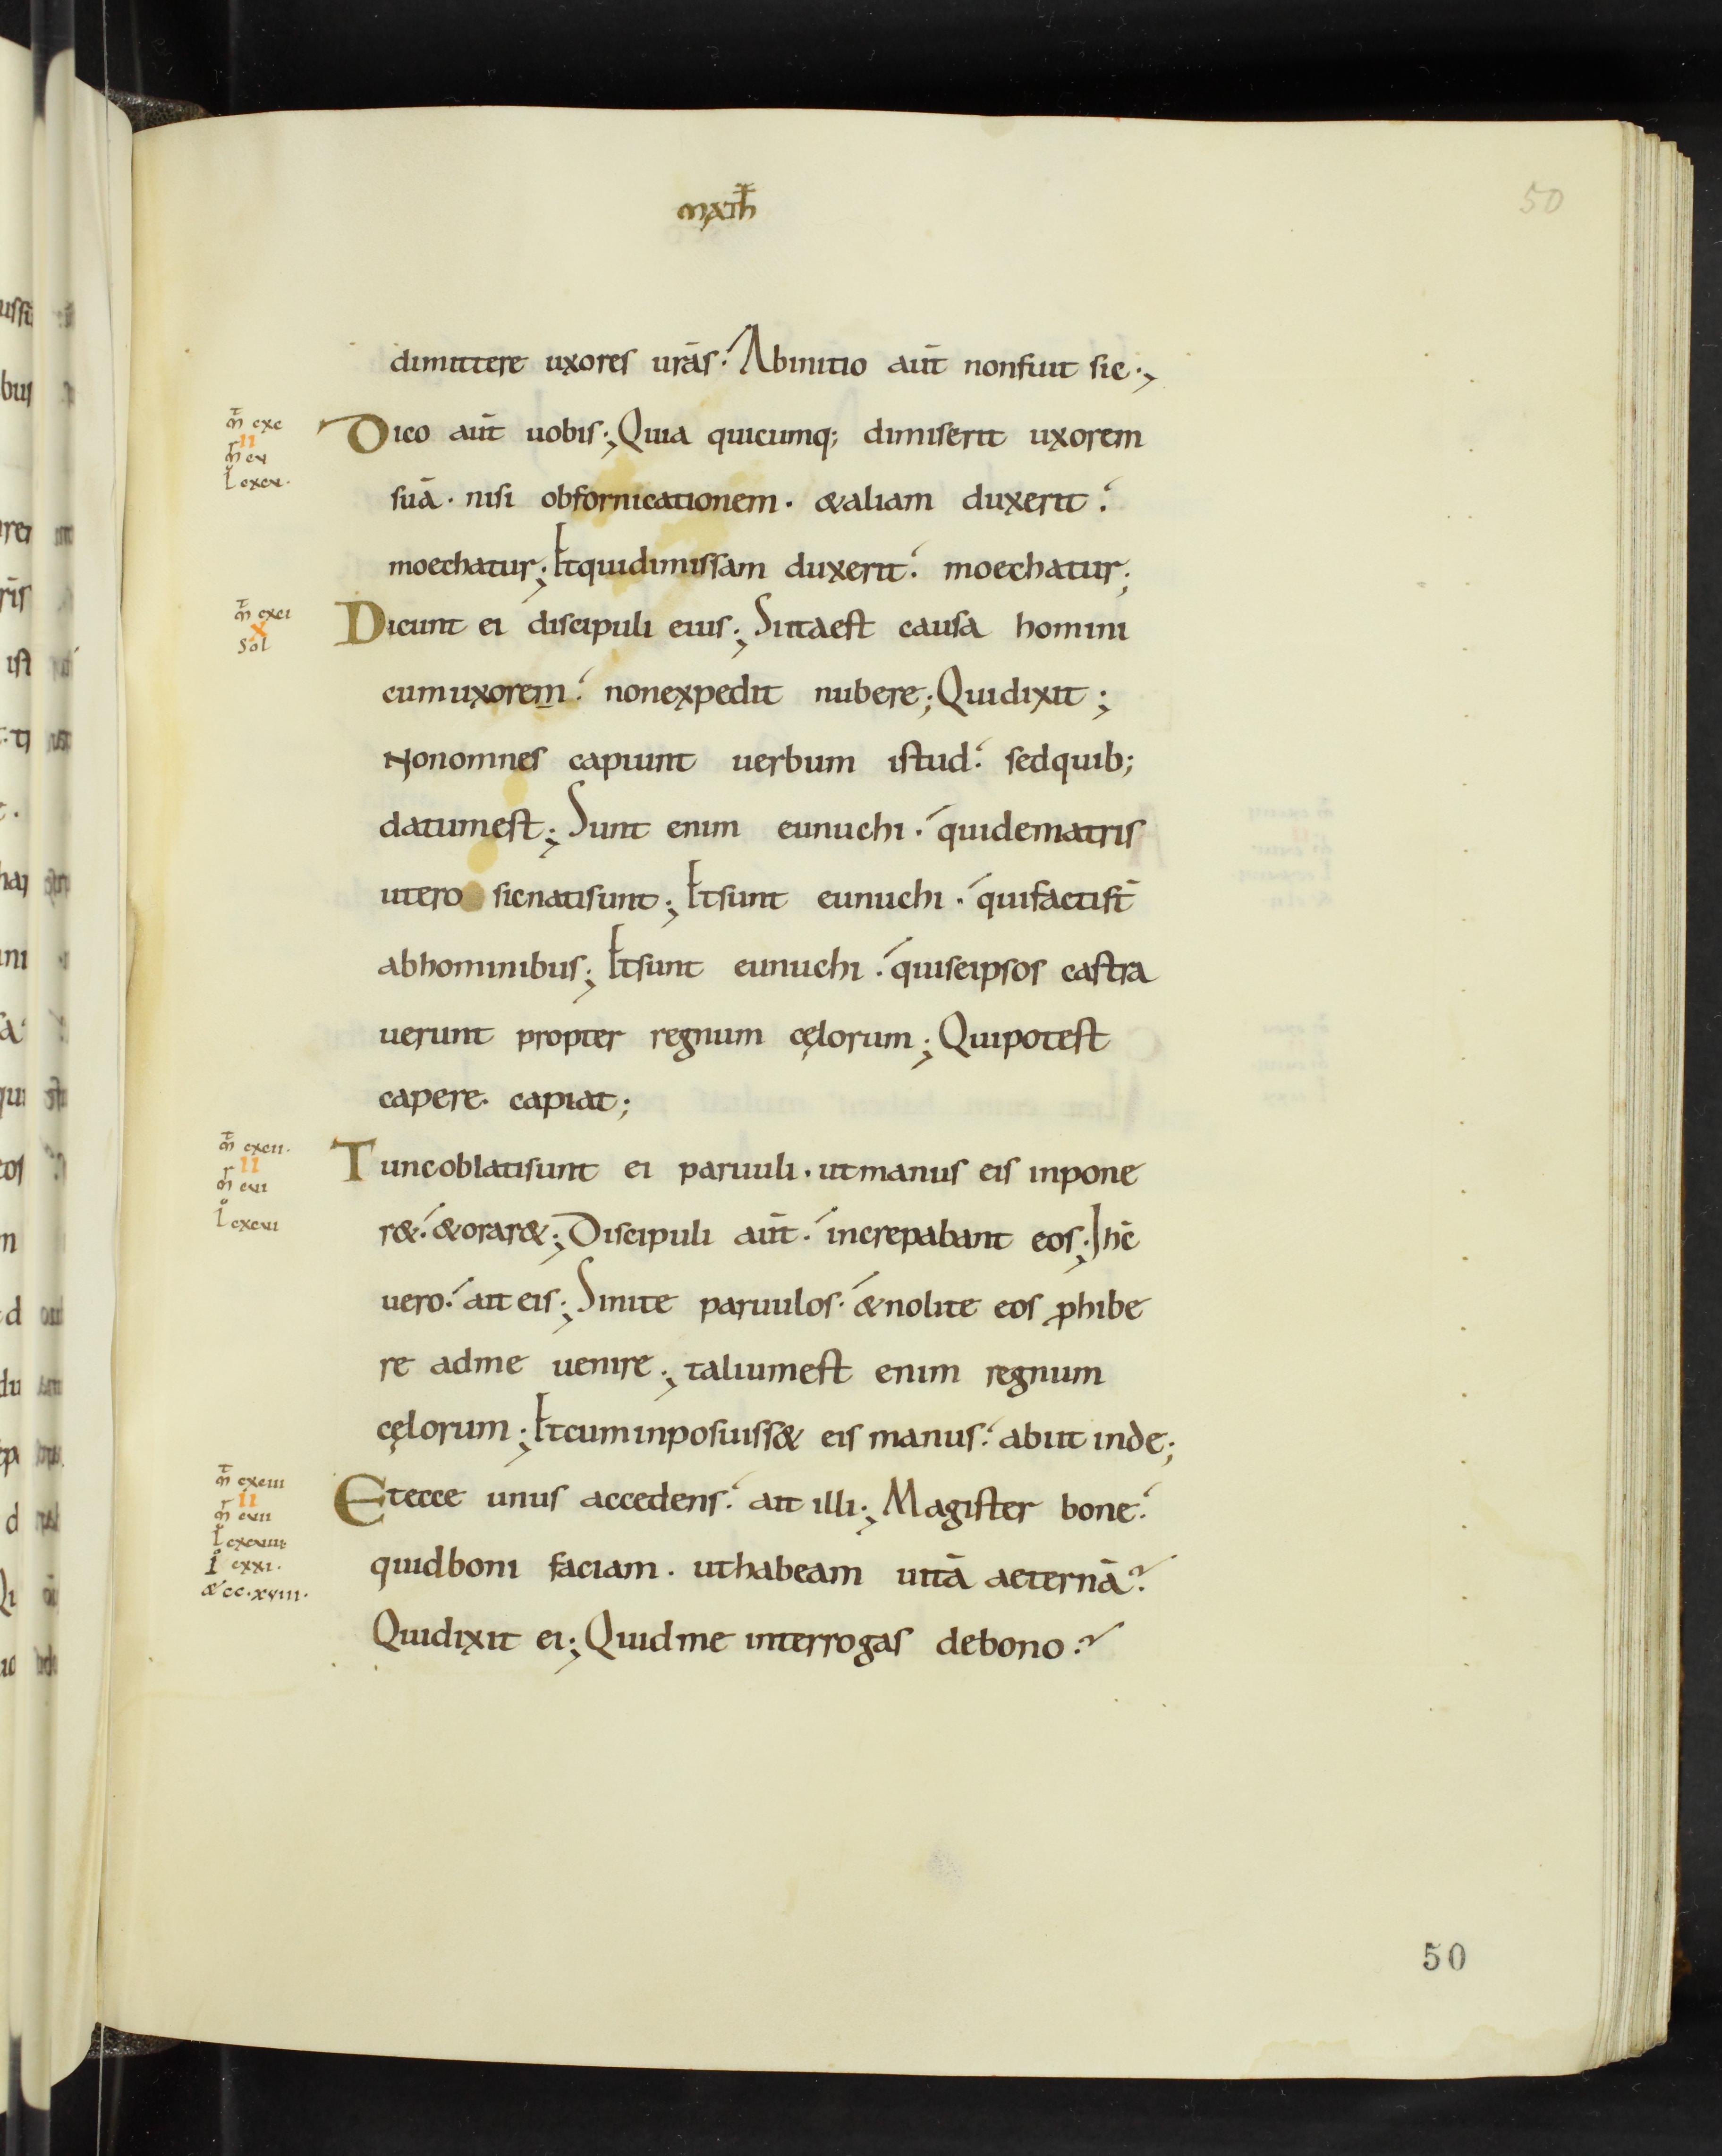 MATH̄
50
dimittere uxores urās. Abinitio aūt nonfuit sic.,
m̄ cxc
II
m̄ cv
l cxcv.
Dico aūt uobis; Quia quicumq; dimiserit uxorem
suā. nisi obfornicationem. &aliam duxerit.
moechatur; Etquidimissam duxerit. moechatur;
m̄ cxci
X
sol
Dicunt ei discipuli eius; Sitaest causa homini
cumuxorem. nonexpedit nubere; Quidixit;
Nonomnes capiunt uerbum istud. sedquib;
datumest; Sunt enim eunuchi. quidematris
utero sicnatisunt; Etsunt eunuchi. quifactist̄
abhominibus; Etsunt eunuchi. quiseipsos castra
uerunt propter regnum cęlorum; Quipotest
capere. capiat;
m̄ cxcii.
II
m̄ cvi
l cxcvi
Tuncoblatisunt ei paruuli. utmanus eis inpone
r&. &orar&; Discipuli aūt. increpabant eos; Ihc̄
uero. ait eis; Sinite paruulos. &nolite eos ꝓhibe
re adme uenire; taliumest enim regnum
cęlorum; Etcuminposuiss& eis manus. abiit inde;
m̄ cxciii
II
m̄ cvii
l cxcviii
i cxxi.
& cc.xviii.
Etecce unus accedens. ait illi; Magister bone.
quidboni faciam. uthabeam uitā aeternā?
Quidixit ei; Quidme interrogas debono?
50